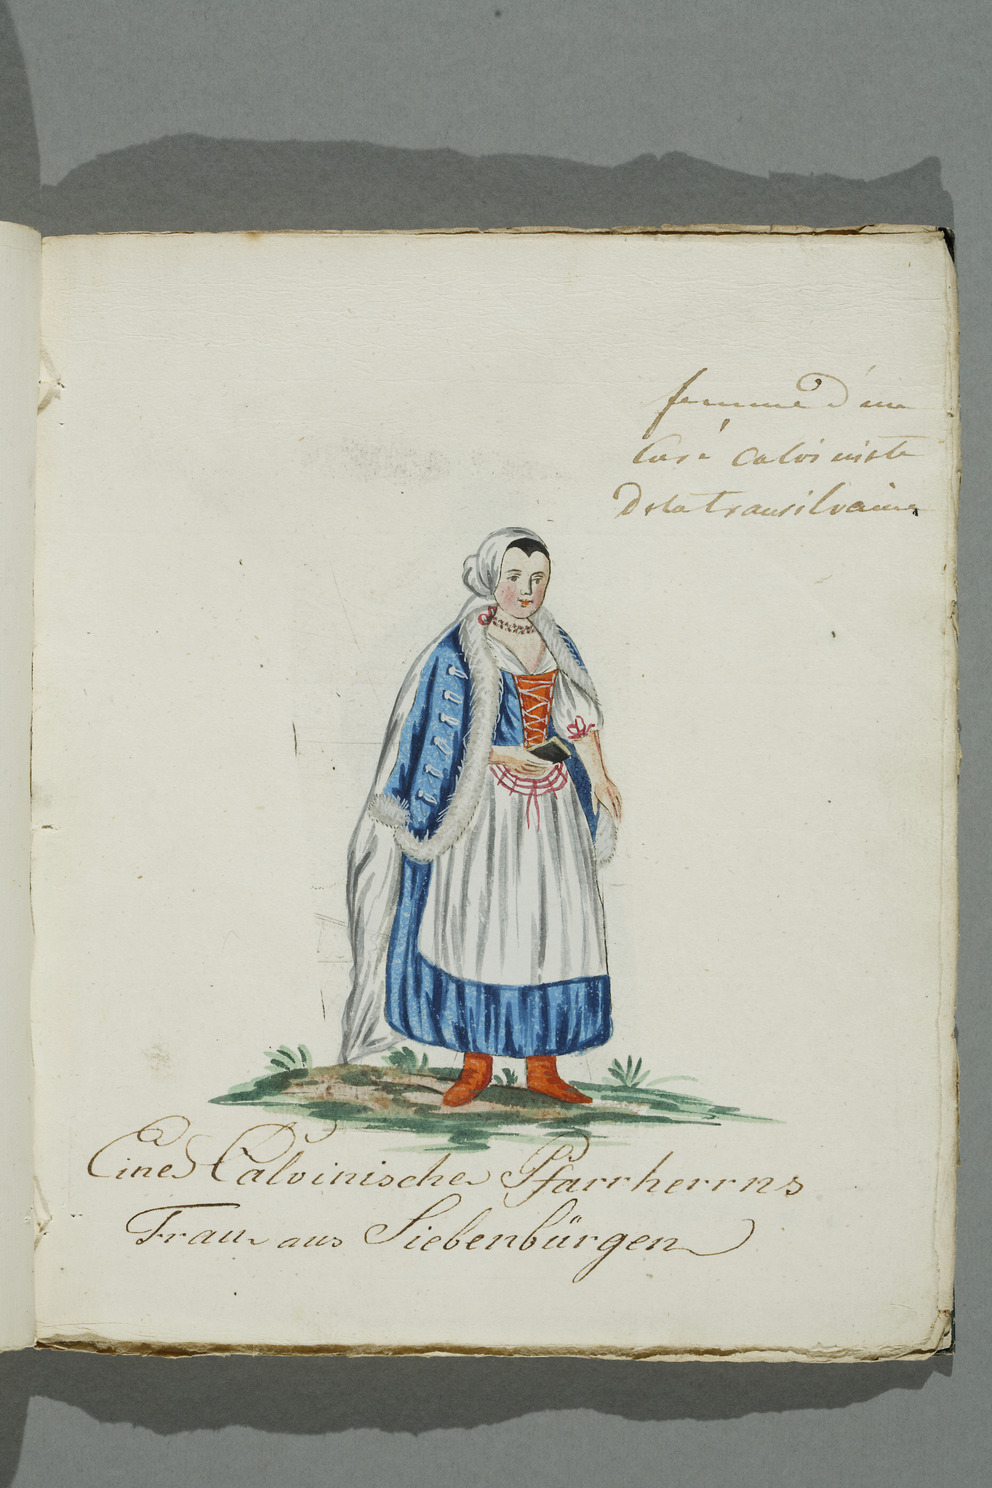 femme d'un
Curé calviniste
De la transilvaine
Eine Calvinische Pfarrherrns
Frau aus Siebenbürgen